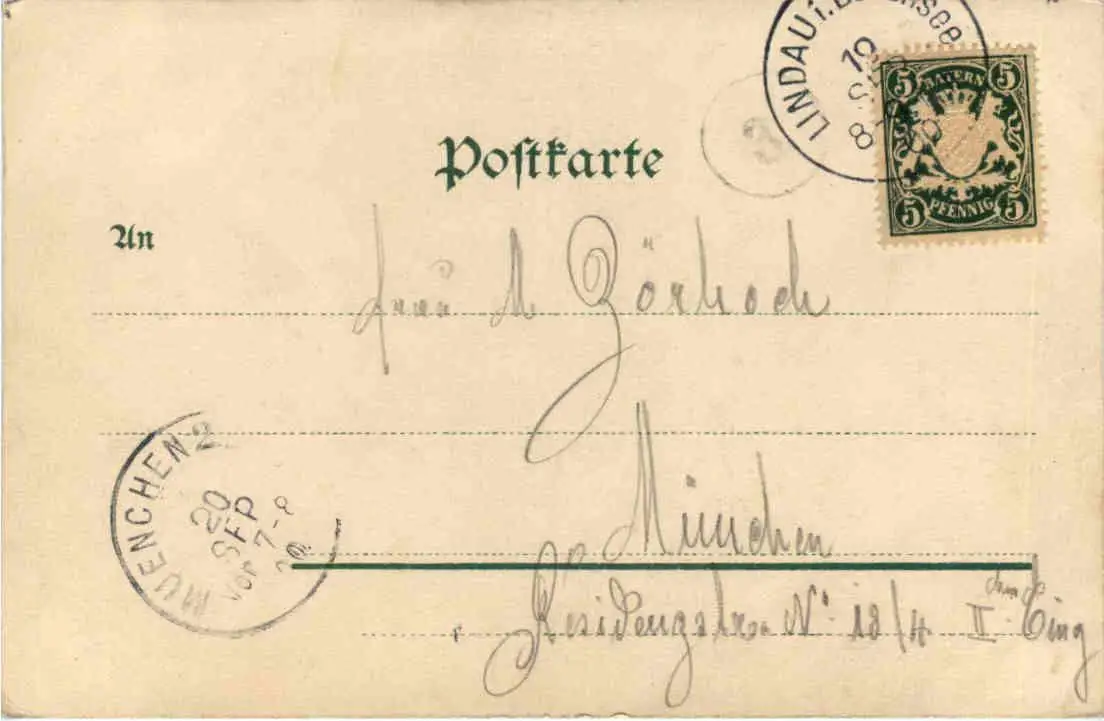 LINDAU i. Bodensee
19
SEP
5 BAYERN 5
5 PFENNIG 5
Postkarte
An
Frau M. Zörhoch
München
Residenzstr. No 18/4 II. Eing
MUENCHEN 2
20
SEP
Vor 7-8